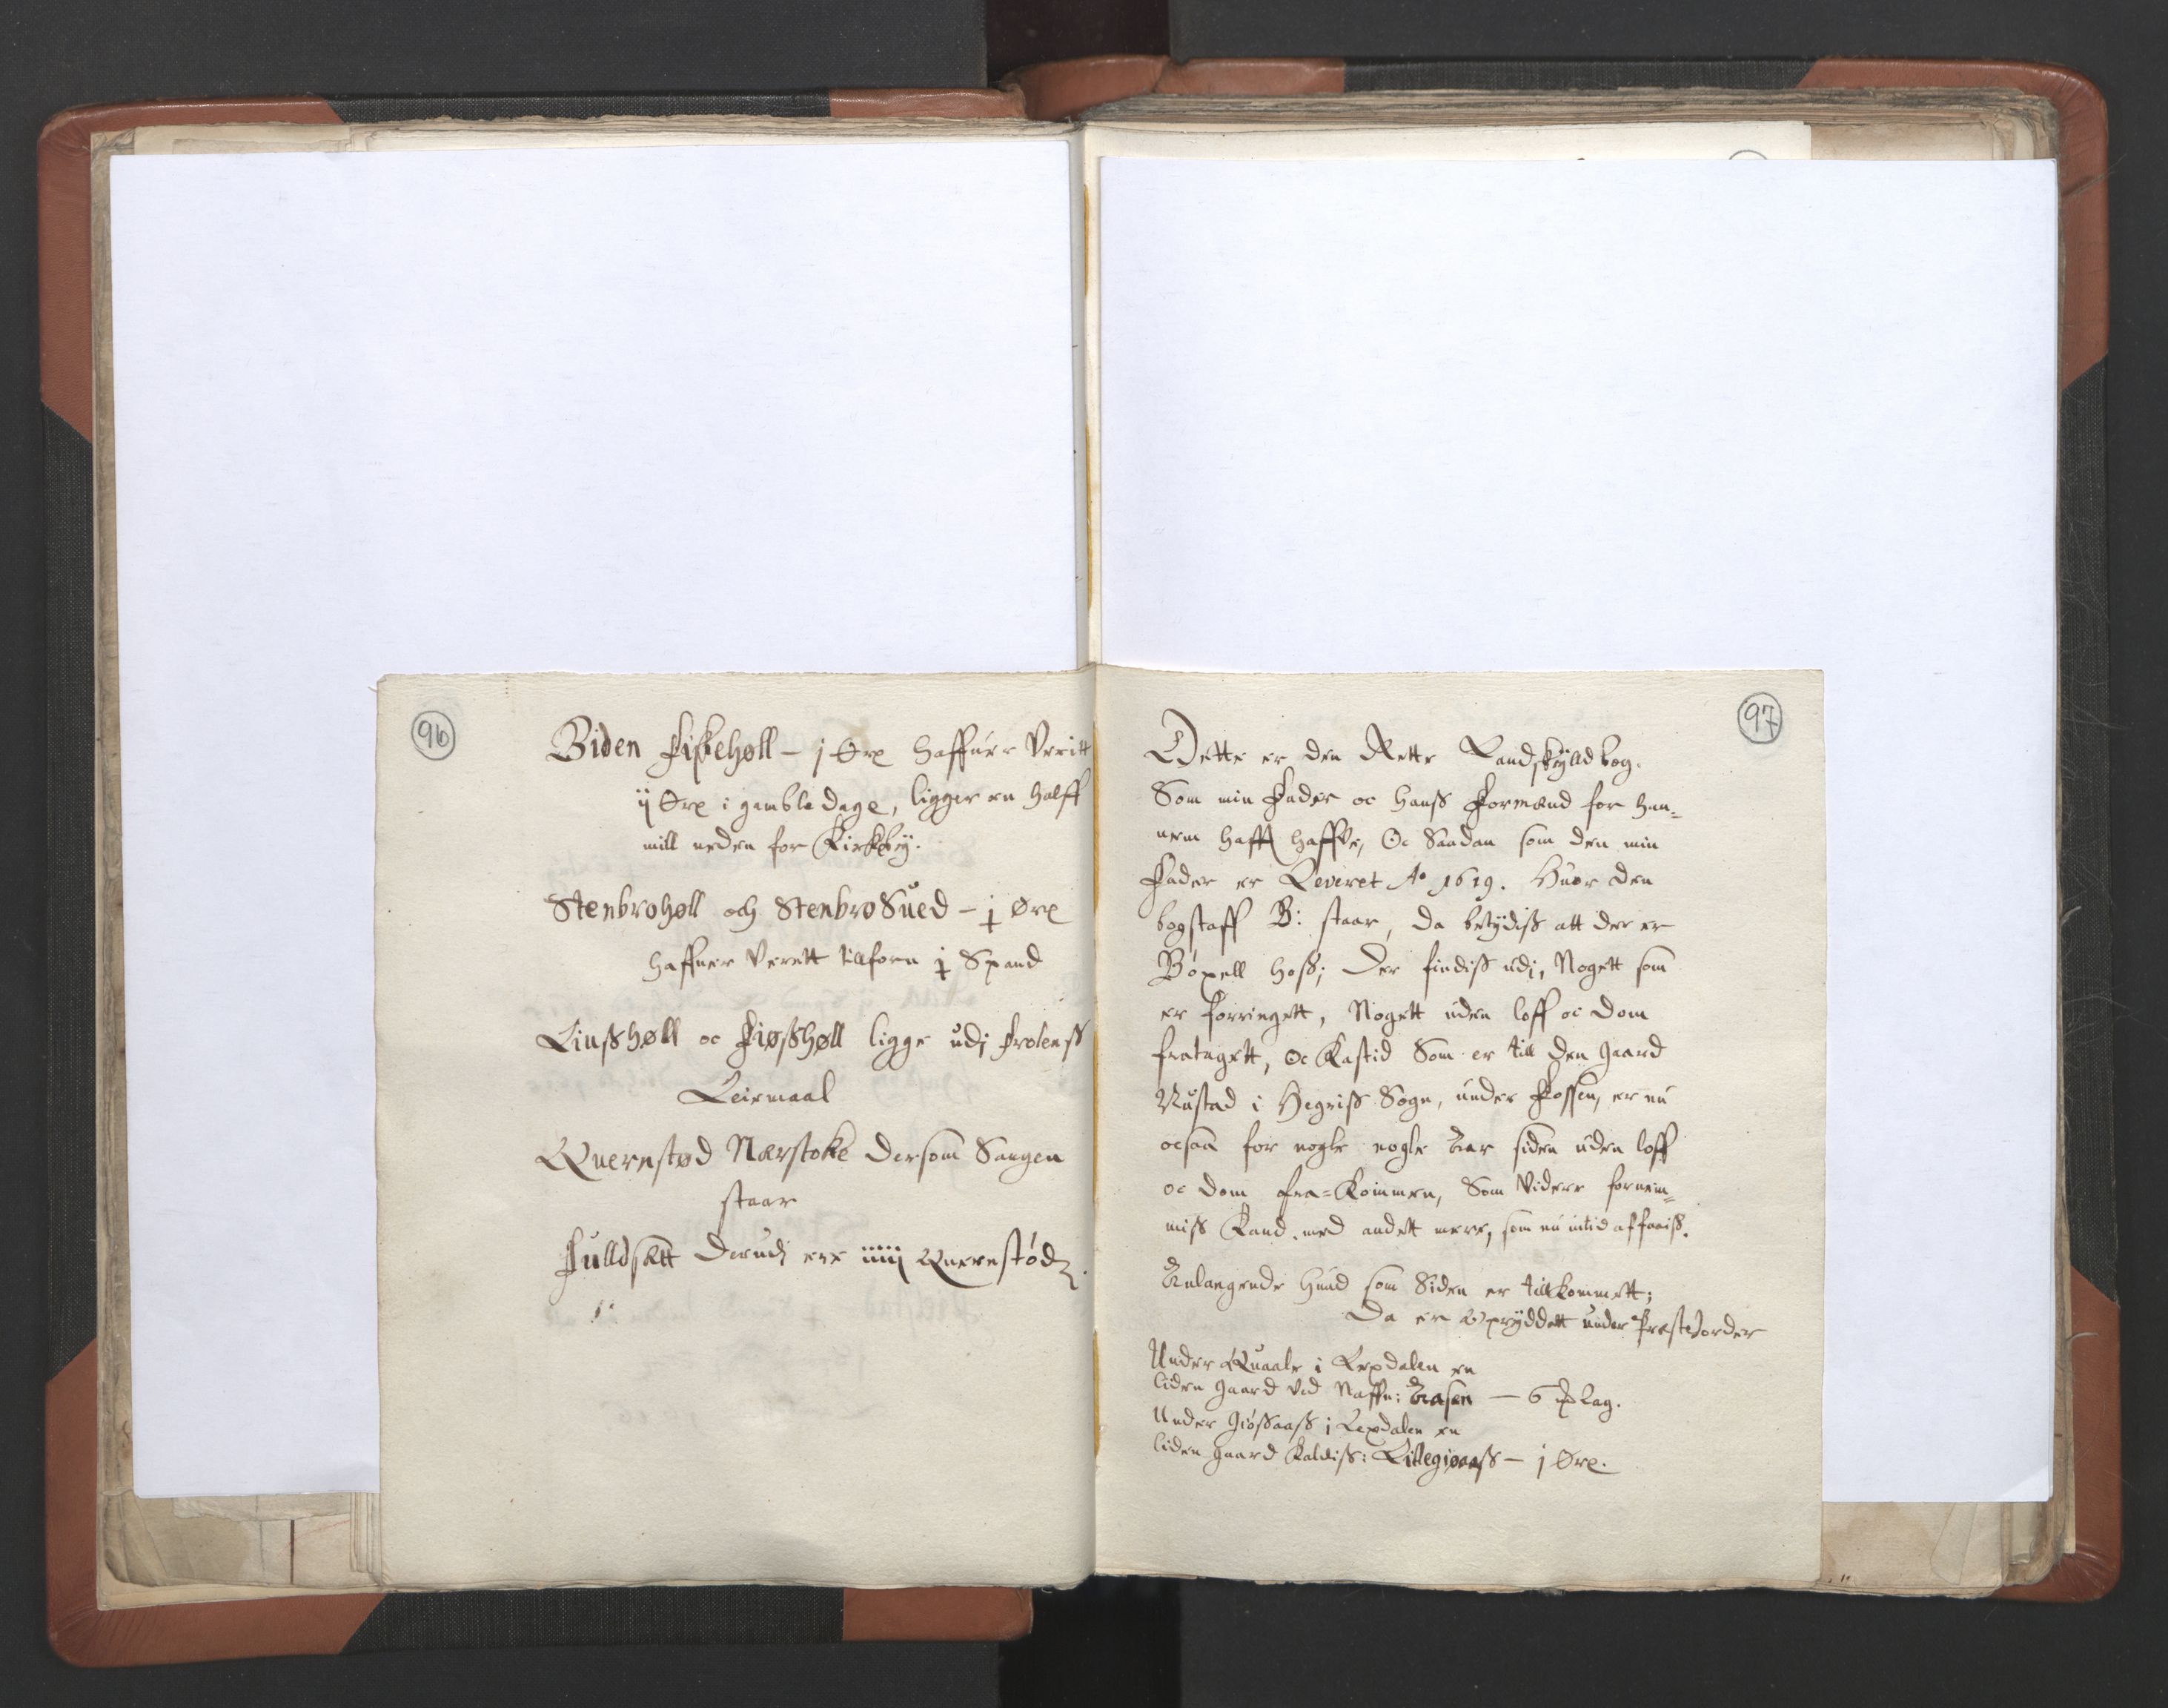 96
Biden Fiskehøll – j Øre haffuer Veritt
ij Øre i gamble dage, ligger en halff
mill neden for Kirkeby.
Stenbrohøll och StenbroSued – j Øre
haffuer Verett tillforn j Spand
Linsshøll oc Fiøsshøll ligge udj Frolenss
Leirmaal
Quernstød Nærstoke dersom Saugen
staar
Fulldsett derudj ere iiij Quernstød
97
Dette er den Rette Landskylld bog.
Som min Fader oc hanss Formænd for han=
nem hafft haffve, Oc Saadan som den min
Fader er Leveret Ao 1619. Huor den
bogstaff B: staar, da betydiss att der er
Böxell hoss; Der findiss udj, Nogett som
er forringett, Nogett uden loff oc dom
fratagett, Oc Kastid Som er till den gaard
Rustad i Hegriss Sogn, under Fossen, er nu
ocsaa for nogle nogle Aar siden uden loff
oc dom fra=kommen, Som Videre fornem=
miss kand. med andett mere, som nu intid aff faaiss.
Anlangende huad som Siden er tillkommett;
Da er Opryddett under Præstejorder
Under Quaale i Lexdalen en
liden gaard ved Naffn: Aasen — 6 Lag.
Under Giössaass i Lexdalen en
liden gaard kaldiss: Lillegiøaass – j Øre.